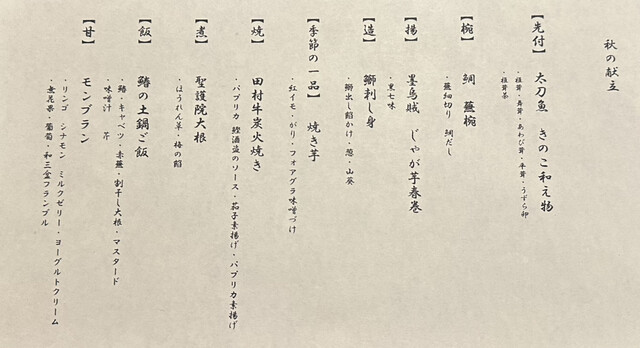 秋の献立
【先付】 太刀魚 きのこ和え物
・椎茸・舞茸・あわび茸・平茸・うずら卵
・椎茸茶
【椀】 鯛 蕪椀
・蕪細切り 鯛だし
【揚】 墨烏賊 じゃが芋春巻
・黒七味
【造】 鰤刺し身
・鰤出し餡かけ・葱・山葵
【季節の一品】 焼き芋
・紅イモ・がり・フォアグラ味噌づけ
【焼】 田村牛炭火焼き
・パプリカ 鰹酒盗のソース・茄子素揚げ・パプリカ素揚げ
【煮】 聖護院大根
・ほうれん草・梅の餡
【飯】 鰆の土鍋ご飯
・鰆・キャベツ・赤蕪・割干し大根・マスタード
・味噌汁 芹
【甘】 モンブラン
・リンゴ シナモン ミルクゼリー・ヨーグルトクリーム
・無花果・葡萄・和三盆フランブル